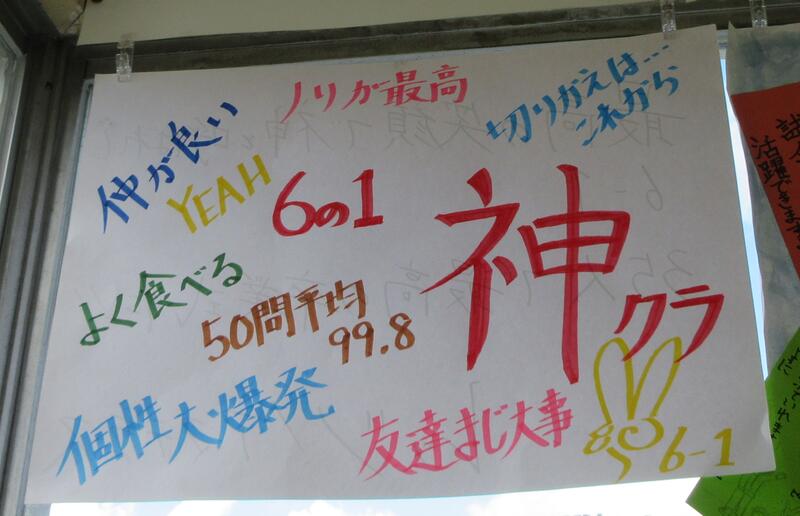 ノリが最高
切りかえは…
これから
仲が良い
YEAH
6の1
神
クラ
よく食べる
50問平均
99.8
個性大爆発
友達まじ大事
6-1
活躍できます